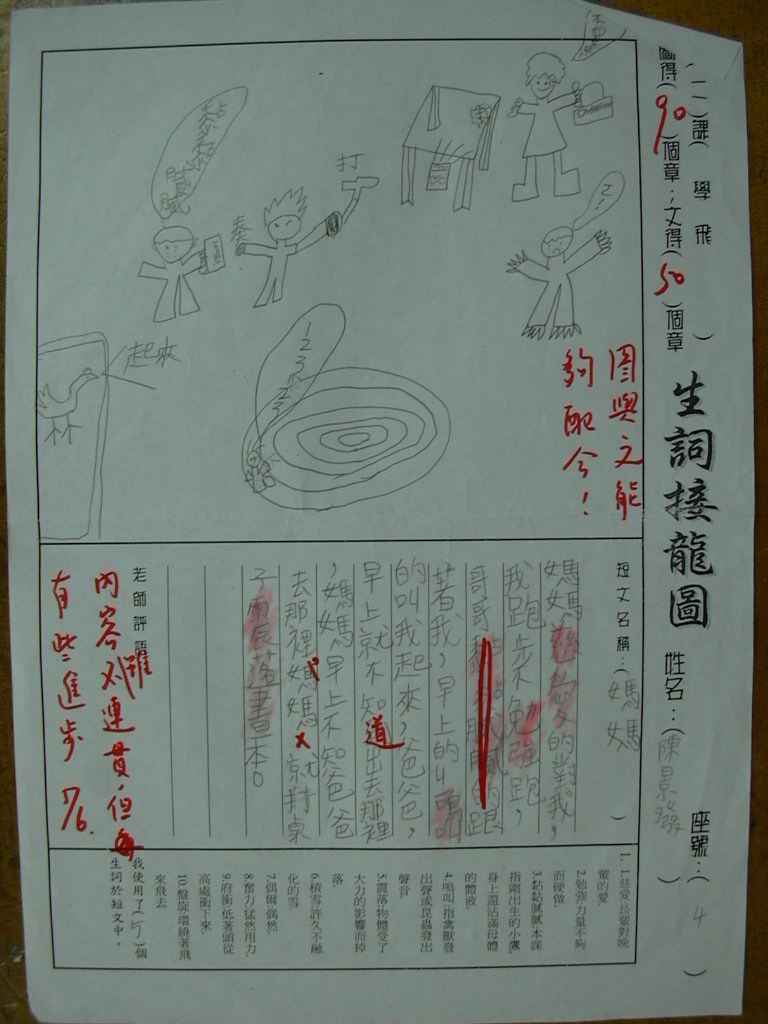 (一)課( 學飛 )
圖得(90)個章;文得(50)個章
生詞接龍圖
姓名:(陳景
座號:(4)
黏黏膩膩
打
起來
圖與文能
夠配合!
短文名稱:(媽媽)
媽媽慈愛的對我,
我跑步勉強跑,
哥哥黏黏膩膩的跟
著我,早上的鳴
的叫我起來,爸爸,
早上就不知道出去那裡
,媽媽,早上不知爸爸
去那裡,媽媽就對桌
子震落書本。
老師評語:
內容雖不連貫,但
有些進步 76.
1. 1.慈愛:長輩對晚
輩的愛
2.勉強:力量不夠
而硬做
3.黏黏膩膩:本課
指剛出生的小鷹,
身上還沾滿母體
的體液.
4.鳴叫:指禽獸發
出聲或昆蟲發出
聲音.
5.震落:物體受了
大力的影響而掉
落
6.積雪:許久不融
化的雪.
7.偶爾:偶然.
8.奮力:猛然用力
9.府衝:低著頭從
高處衝下來.
10.盤旋:環繞著飛
來飛去
我使用了(5)個
生詞於短文中。